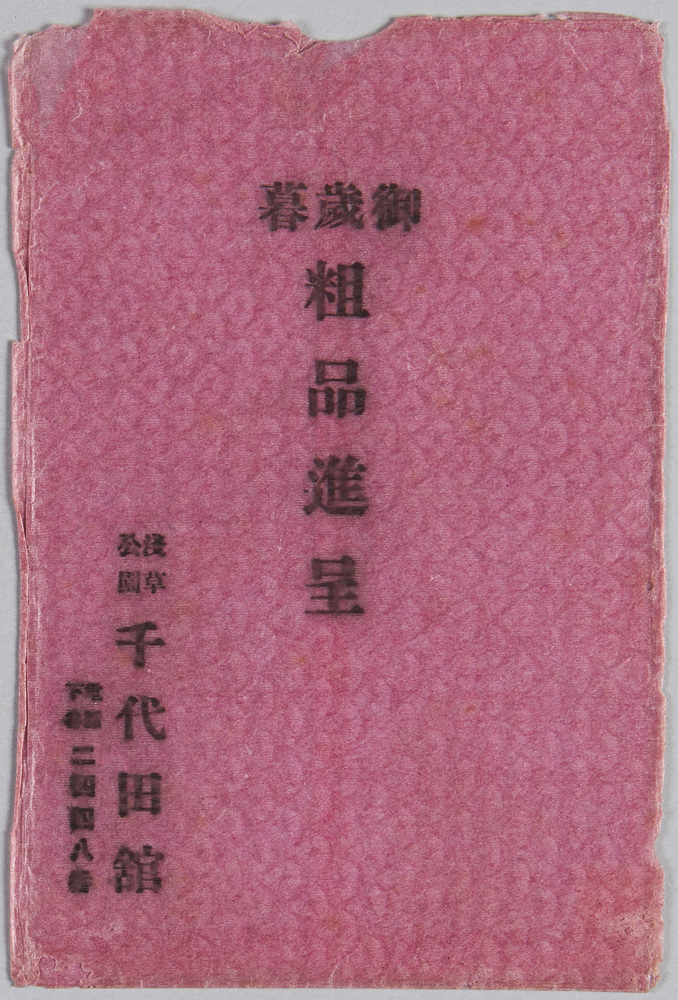 御歲暮
粗品進呈
淺草公園
千代田舘
電話下谷二四四八番